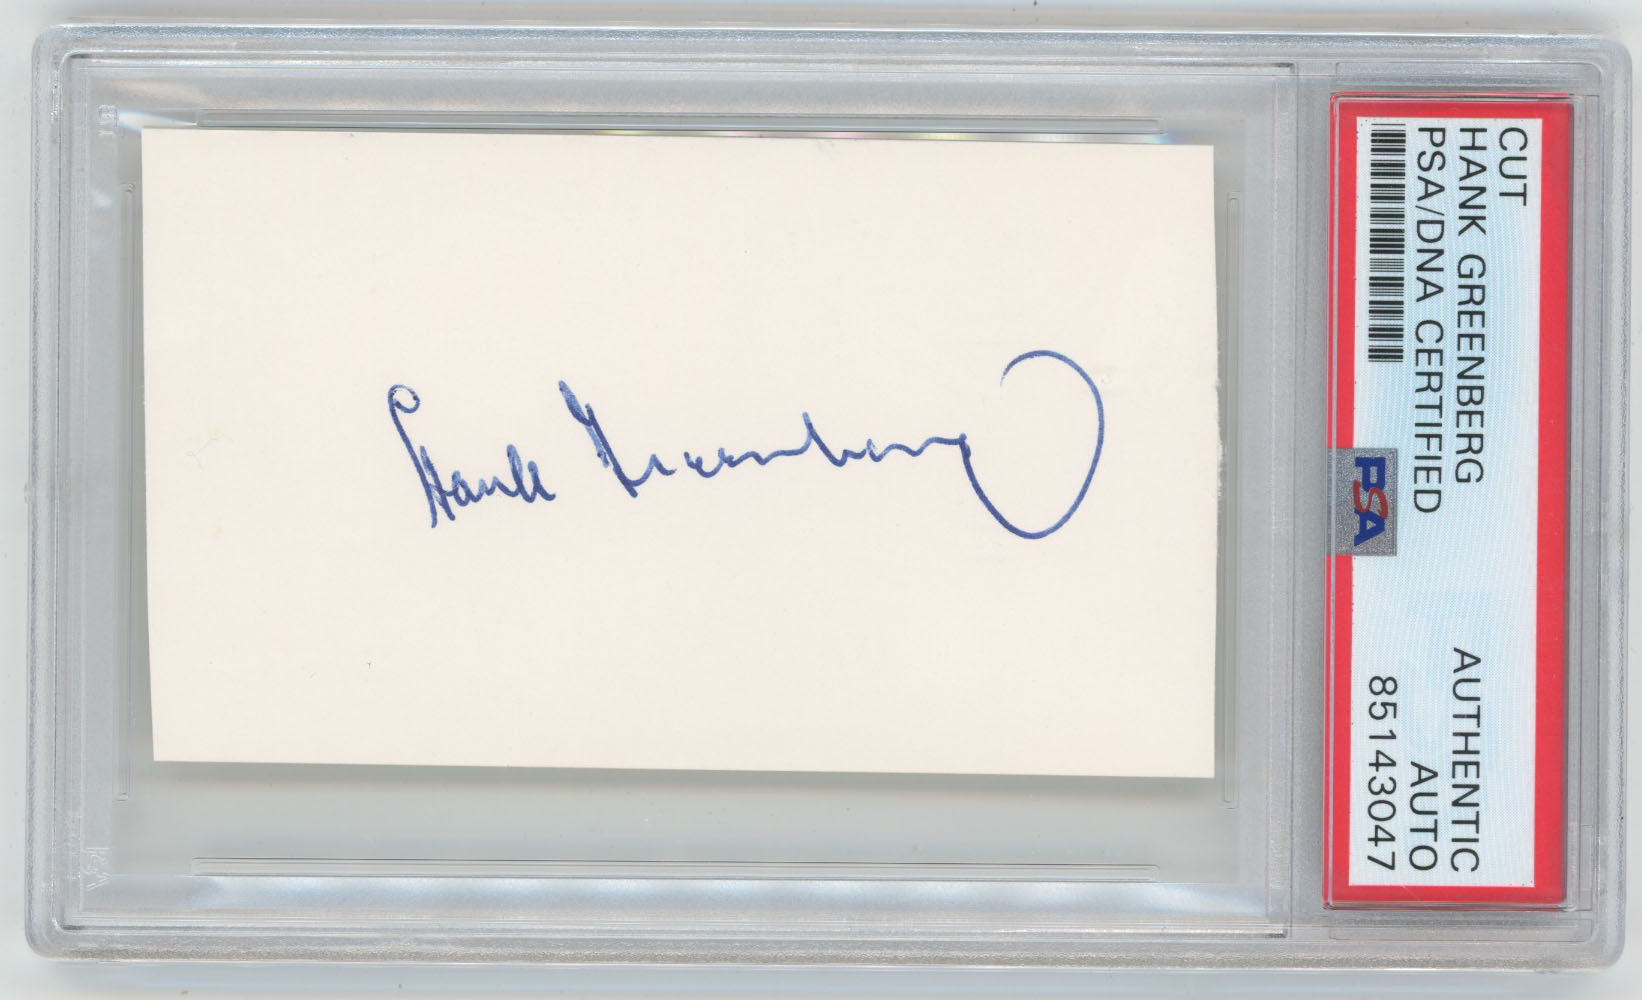 Hank Greenberg
CUT
HANK GREENBERG
PSA/DNA CERTIFIED
PSA
AUTHENTIC
AUTO
85143047